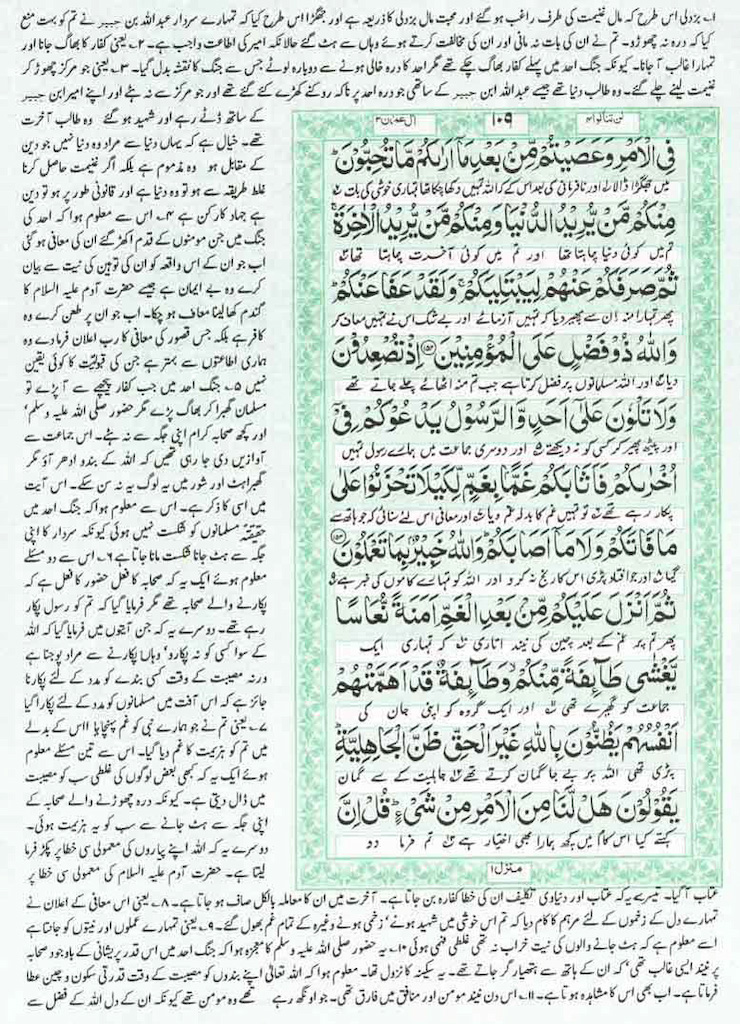 ۱۔ بزدلی اس طرح کہ مال غنیمت کی طرف راغب ہو گئے اور محبت مال بزدلی کا ذریعہ ہے اور جھگڑا اس طرح کیا کہ تمہارے سردار عبداللہ بن جبیر نے تم کو بہت منع
کیا کہ درہ نہ چھوڑو۔ تم نے ان کی بات نہ مانی اور ان کی مخالفت کرتے ہوئے وہاں سے ہٹ گئے حالانکہ امیر کی اطاعت واجب ہے۔ ۲۔ یعنی کفار کا بھاگ جانا اور
تمہارا غالب آ جانا۔ کیونکہ جنگ احد میں پہلے کفار بھاگ چکے تھے مگر احد کا درہ خالی ہونے سے دوبارہ لوٹے جس سے جنگ کا نقشہ بدل گیا۔ ۳۔ یعنی جو مرکز چھوڑ کر
غنیمت لینے چلے گئے۔ وہ طالب دنیا تھے جیسے عبداللہ ابن جبیر کے ساتھی جو درہ احد پر ناکہ روکنے کھڑے کئے گئے تھے اور جو مرکز سے نہ ہٹے اور اپنے امیر ابن جبیر
کے ساتھ ڈٹے رہے اور شہید ہو گئے وہ طالب آخرت
تھے۔ خیال ہے کہ یہاں دنیا سے مراد وہ دنیا نہیں جو دین
کے مقابل ہو وہ مذموم ہے بلکہ اگر غنیمت حاصل کرنا
غلط طریقہ سے ہو تو وہ دنیا ہے اور قانونی طور پر ہو تو دین
ہے جہاد کا رکن ہے ۴۔ اس سے معلوم ہوا کہ احد کی
جنگ میں جن مومنوں کے قدم اکھڑ گئے ان کی معافی ہو گئی
اب جو ان کے اس واقعہ کو ان کی توہین کی نیت سے بیان
کرے وہ بے ایمان ہے جیسے حضرت آدم علیہ السلام کا
گندم کھا لینا معاف ہو چکا۔ اب جو ان پر طعن کرے وہ
کافر ہے بلکہ جس قصور کی معافی کا رب اعلان فرما دے وہ
ہماری اطاعتوں سے بہتر ہے جن کی قبولیت کا کوئی یقین
نہیں ۵۔ جنگ احد میں جب کفار پیچھے سے آ پڑے تو
مسلمان گھبرا کر بھاگ پڑے مگر حضور صلی اللہ علیہ وسلم'
اور کچھ صحابہ کرام اپنی جگہ سے نہ ہٹے۔ اس جماعت سے
آوازیں دی جا رہی تھیں کہ اللہ کے بندو ادھر آؤ مگر
گھبراہٹ اور شور میں یہ لوگ یہ نہ سن سکے۔ اس آیت
میں اسی کا ذکر ہے۔ اس سے معلوم ہوا کہ جنگ احد میں
حقیقۃ مسلمانوں کو شکست نہیں ہوئی کیونکہ سردار کا اپنی
جگہ سے ہٹ جانا شکست مانا جاتا ہے ۶۔ اس سے دو مسئلے
معلوم ہوئے ایک یہ کہ صحابہ کا فعل حضور کا فعل ہے کہ
پکارنے والے صحابہ تھے مگر فرمایا گیا کہ تم کو رسول پکار
رہے تھے۔ دوسرے یہ کہ جن آیتوں میں فرمایا گیا کہ اللہ
کے سوا کسی کو نہ پکارو' وہاں پکارنے سے مراد پوجنا ہے
ورنہ مصیبت کے وقت کسی بندے کو مدد کے لئے پکارنا
جائز ہے کہ اس آفت میں مسلمانوں کو مدد کے لئے پکارا گیا
۷۔ یعنی تم نے جو ہمارے نبی کو غم پہنچایا اس کے بدلے
میں تم کو ہزیمت کا غم دیا گیا۔ اس سے تین مسئلے معلوم
ہوئے ایک یہ کہ کبھی بعض لوگوں کی غلطی سب کو مصیبت
میں ڈال دیتی ہے۔ کیونکہ درہ چھوڑنے والے صحابہ کے
اپنی جگہ سے ہٹ جانے سے سب کو یہ ہزیمت ہوئی۔
دوسرے یہ کہ اللہ اپنے پیاروں کی معمولی سی خطا پر پکڑ فرما
لیتا ہے۔ حضرت آدم علیہ السلام کی معمولی سی خطا پر
لن تنالوا ۴
۱۰۹
ال عمران ۳
فِي الْاَمْرِ وَعَصَيْتُمْ مِّنْۢ بَعْدِ مَاۤ اَرٰىكُمْ مَّا تُحِبُّوْنَ ؕ
میں جھگڑا ڈالا اور نافرمانی کی بعد اس کے کہ اللہ تمہیں دکھا چکا تھا تمہاری خوشی کی بات
مِنْكُمْ مَّنْ يُّرِيْدُ الدُّنْيَا وَمِنْكُمْ مَّنْ يُّرِيْدُ الْاٰخِرَةَ ۚ
تم میں کوئی دنیا چاہتا تھا اور تم میں کوئی آخرت چاہتا تھا
ثُمَّ صَرَفَكُمْ عَنْهُمْ لِيَبْتَلِيَكُمْ ۚ وَلَقَدْ عَفَا عَنْكُمْ ؕ
پھر تمہارا منہ ان سے پھیر دیا کہ تمہیں آزمائے اور بے شک اس نے تمہیں معاف کر
وَاللّٰهُ ذُوْ فَضْلٍ عَلَى الْمُؤْمِنِيْنَ ﴿۱۵۲﴾ اِذْ تُصْعِدُوْنَ
دیا اور اللہ مسلمانوں پر فضل کرتا ہے جب تم منہ اٹھائے چلے جاتے تھے
وَلَا تَلْوٗنَ عَلٰۤى اَحَدٍ وَّالرَّسُوْلُ يَدْعُوْكُمْ فِيْۤ
اور پیٹھ پھیر کر کسی کو نہ دیکھتے اور دوسری جماعت میں ہمارے رسول تمہیں
اُخْرٰىكُمْ فَاَثَابَكُمْ غَمًّۢا بِغَمٍّ لِّكَيْلَا تَحْزَنُوْا عَلٰى
پکار رہے تھے تو تمہیں غم کا بدلہ غم دیا اور معافی اس لئے سنائی کہ جو ہاتھ سے
مَا فَاتَكُمْ وَلَا مَاۤ اَصَابَكُمْ ؕ وَاللّٰهُ خَبِيْرٌۢ بِمَا تَعْمَلُوْنَ ﴿۱۵۳﴾
گیا اور جو افتاد پڑی اس کا رنج نہ کرو اور اللہ کو تمہارے کاموں کی خبر ہے
ثُمَّ اَنْزَلَ عَلَيْكُمْ مِّنْۢ بَعْدِ الْغَمِّ اَمَنَةً نُّعَاسًا
پھر تم پر غم کے بعد چین کی نیند اتاری کہ تمہاری ایک
يَّغْشٰى طَآىِٕفَةً مِّنْكُمْ ۙ وَطَآىِٕفَةٌ قَدْ اَهَمَّتْهُمْ
جماعت کو گھیرے تھی اور ایک گروہ کو اپنی جان کی
اَنْفُسُهُمْ يَظُنُّوْنَ بِاللّٰهِ غَيْرَ الْحَقِّ ظَنَّ الْجَاهِلِيَّةِ ؕ
پڑی تھی اللہ پر بے جا گمان کرتے تھے جاہلیت کے سے گمان
يَقُوْلُوْنَ هَلْ لَّنَا مِنَ الْاَمْرِ مِنْ شَيْءٍ ؕ قُلْ اِنَّ
کہتے کیا اس کام میں کچھ ہمارا بھی اختیار ہے تم فرما دو
منزل ۱
عتاب آ گیا۔ تیسرے یہ کہ عتاب اور دنیاوی تکلیف ان کی خطا کا کفارہ بن جاتا ہے۔ آخرت میں ان کا معاملہ بالکل صاف ہو جاتا ہے۔ ۸۔ یعنی اس معافی کے اعلان نے
تمہارے دل کے زخموں کے لئے مرہم کا کام دیا کہ تم اس خوشی میں شہید ہونے' زخمی ہونے وغیرہ کے تمام غم بھول گئے۔ ۹۔ یعنی تمہارے عملوں اور نیتوں کو جانتا ہے
اسے معلوم ہے کہ ہٹ جانے والوں کی نیت خراب نہ تھی غلط فہمی ہوئی ۱۰۔ یہ حضور صلی اللہ علیہ وسلم کا معجزہ ہوا کہ جنگ احد میں اس قدر پریشانی کے باوجود صحابہ
پر نیند ایسی غالب تھی' کہ ان کے ہاتھ سے ہتھیار گر جاتے تھے۔ یہ سکینہ کا نزول تھا۔ معلوم ہوا کہ اللہ تعالیٰ اپنے بندوں کو مصیبت کے وقت قدرتی سکون و چین عطا
فرماتا ہے۔ اب بھی اس کا مشاہدہ ہوتا ہے۔ ۱۱۔ اس دن نیند مومن اور منافق میں فارق تھی۔ جو اونگھ رہے تھے وہ مومن تھے کیونکہ ان کے دل اللہ کے فضل سے